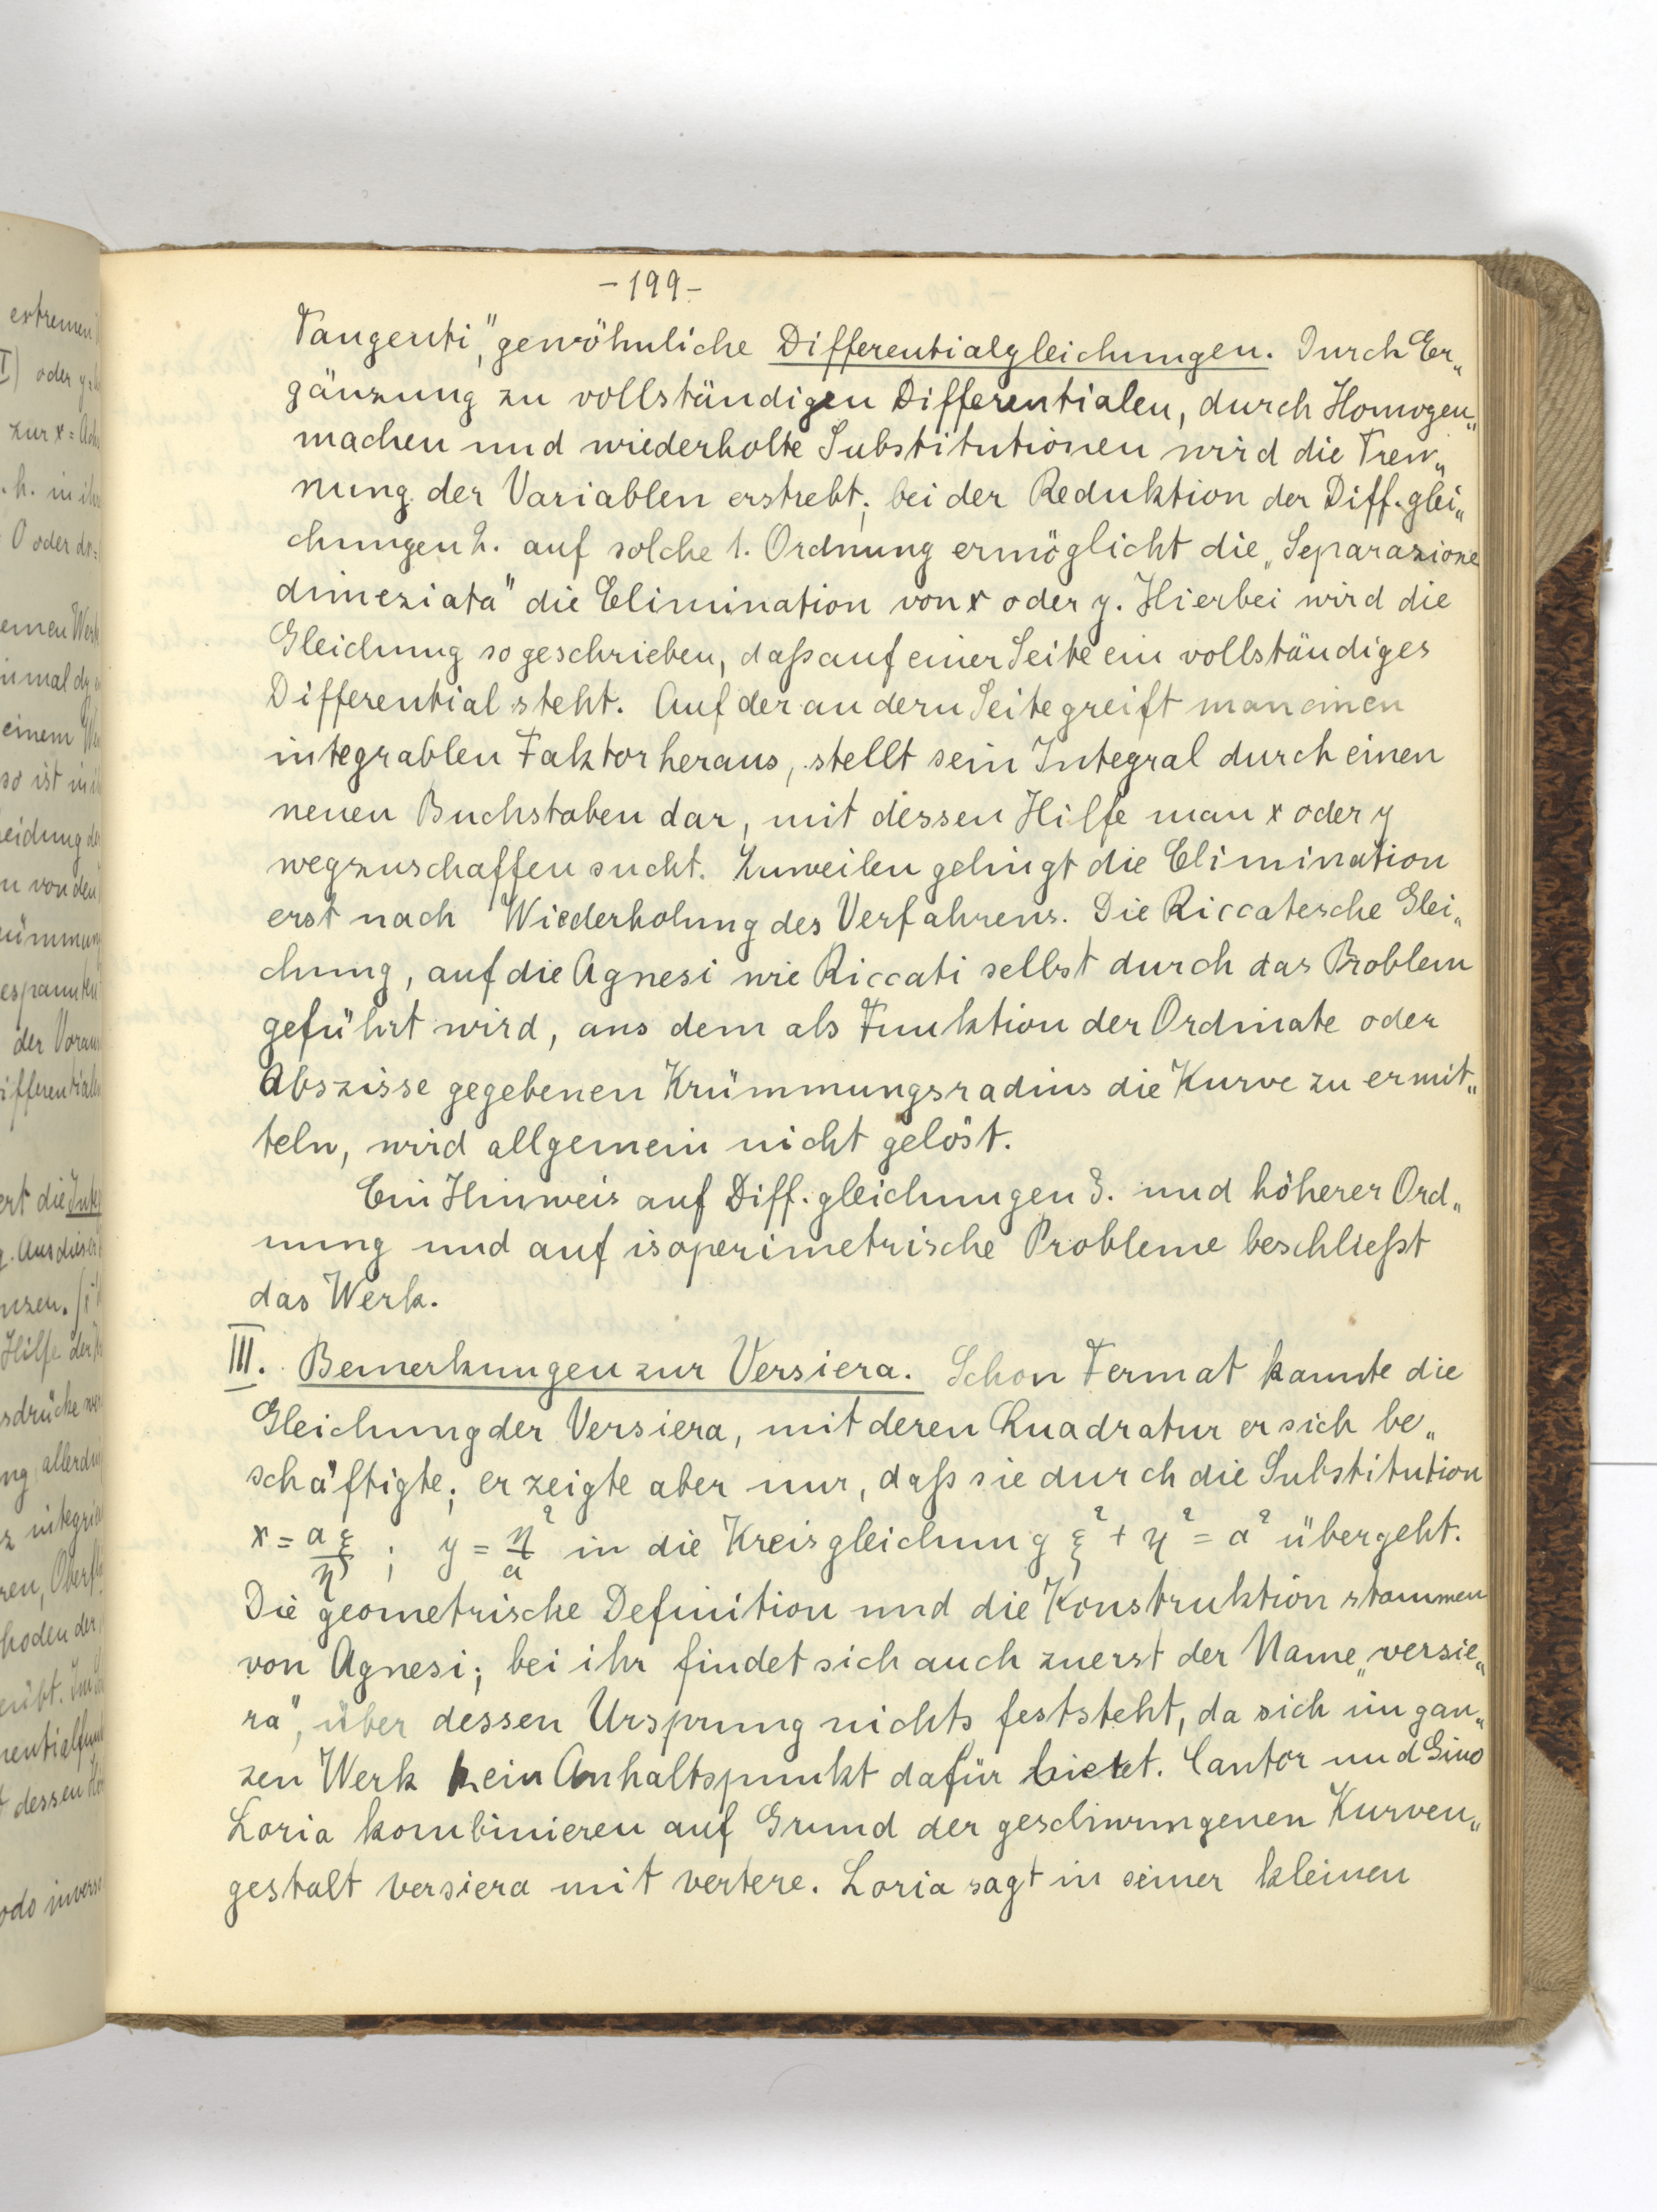 -199-
Tangenti," gewöhnliche Differentialgleichungen. Durch Er„
gänzung zu vollständigen Differentialen, durch Homogen„
machen und wiederholte Substitutionen wird die Tren„
nung der Variablen erstrebt; bei der Reduktion der Diff. glei„
chungen 2. auf solche 1. Ordnung ermöglicht die „Separazione
dimeziata" die Elimination von x oder y. Hierbei wird die
Gleichung so geschrieben, daß auf einer Seite ein vollständiges
Differential steht. Auf der andern Seite greift man einen
integrablen Faktor heraus, stellt sein Integral durch einen
neuen Buchstaben dar, mit dessen Hilfe man x oder y
wegzuschaffen sucht. Zuweilen gelingt die Elimination
erst nach Wiederholung des Verfahrens. Die Riccatesche Glei„
chung, auf die Agnesi wie Riccati selbst durch das Problem
geführt wird, aus dem als Funktion der Ordinate oder
Abszisse gegebenen Krümmungsradius die Kurve zu ermit„
teln, wird allgemein nicht gelöst.
Ein Hinweis auf Diff. gleichungen 3. und höherer Ord„
nung und auf isoperimetrische Probleme beschließt
das Werk.
III. Bemerkungen zur Versiera. Schon Fermat kannte die
Gleichung der Versiera, mit deren Quadratur er sich be„
schäftigte; er zeigte aber nur, daß sie durch die Substitution
x = aξ/η ; y = η²/a in die Kreisgleichung ξ² + η² = a² übergeht.
Die geometrische Definition und die Konstruktion stammen
von Agnesi; bei ihr findet sich auch zuerst der Name „versie„
ra", über dessen Ursprung nichts feststeht, da sich im gan„
zen Werk kein Anhaltspunkt dafür bietet. Cantor und Gino
Loria kombinieren auf Grund der geschwungenen Kurven„
gestalt versiera mit vertere. Loria sagt in seiner kleinen